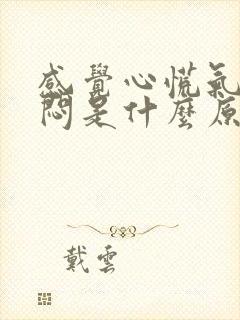 感覺心慌氣
悶是什麼原
戴雲